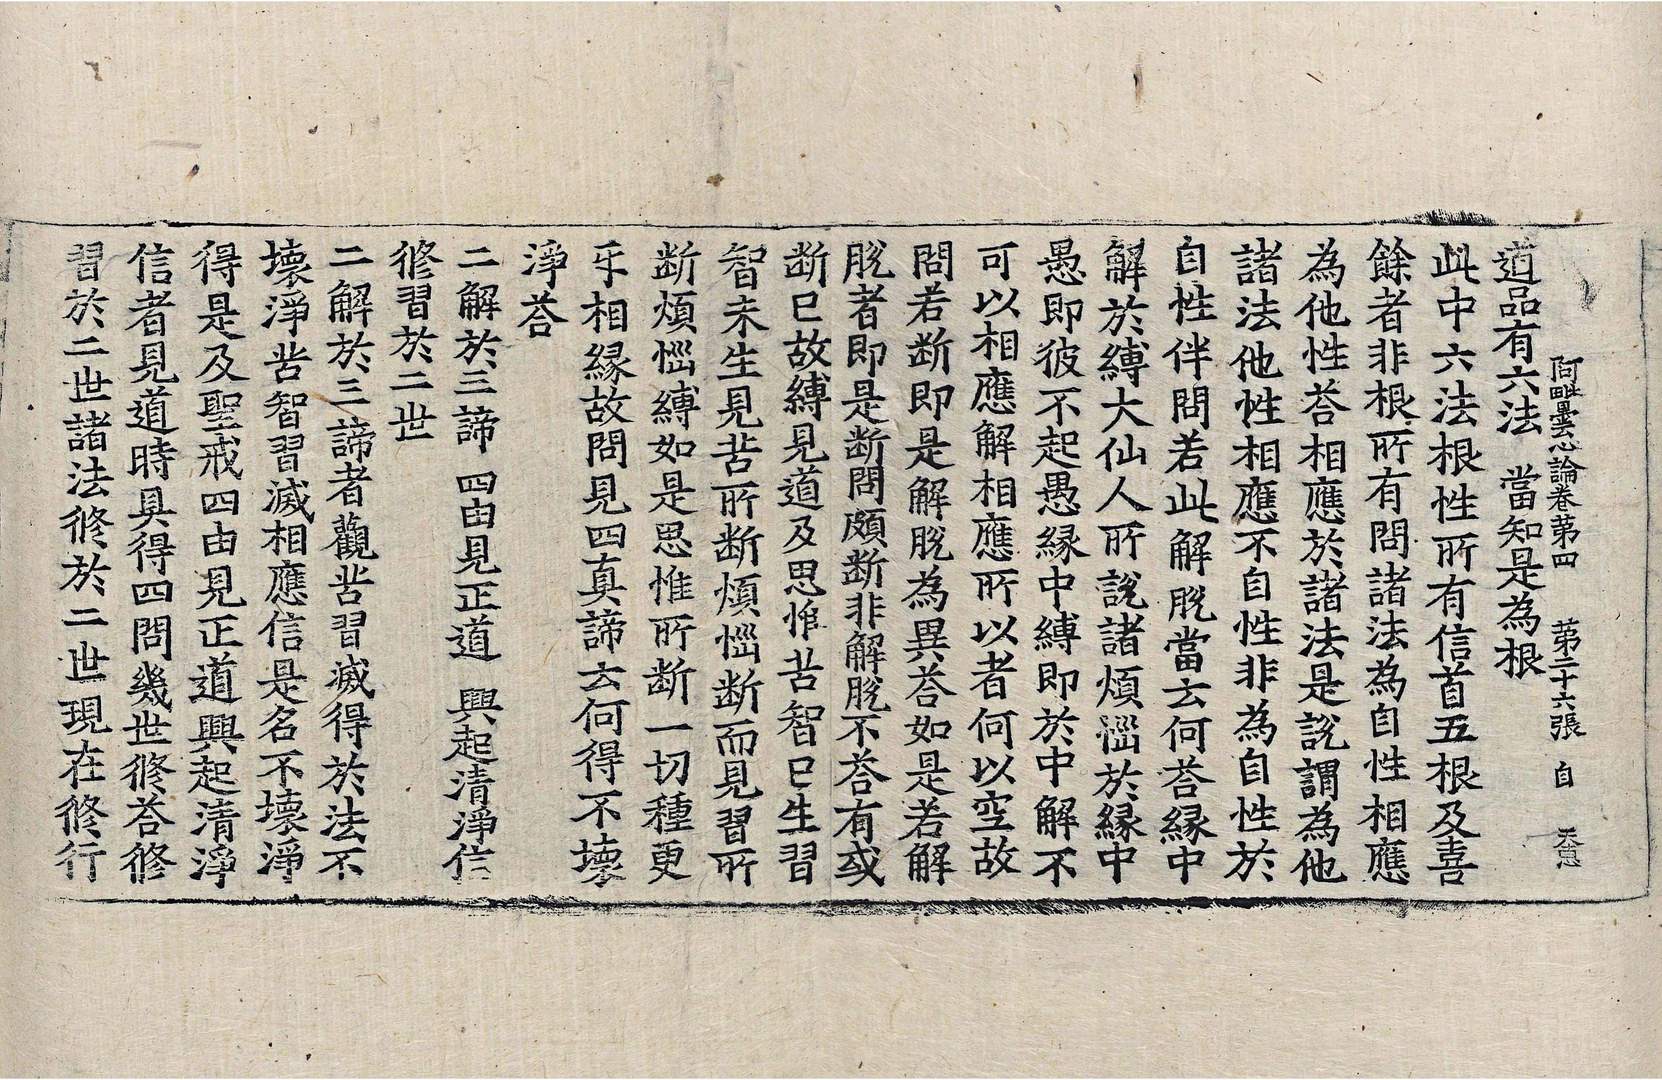 阿毗曇心論卷第四　第二十六張　自　天惠
道品有六法　當知是為根
此中六法根性所有信首五根及喜
餘者非根所有問諸法為自性相應
為他性荅相應於諸法是說謂為他
諸法他性相應不自性非為自性於
自性伴問若此解脫當云何荅緣中
解於縛大仙人所說諸煩惱於緣中
愚即彼不起愚緣中縛即於中解不
可以相應解相應所以者何以空故
問若断即是解脫為異荅如是若解
脫者即是断問頗断非解脫不荅有或
断已故縛見道及思惟苦智已生習
智未生見苦所断煩惱断而見習所
断煩惱縛如是思惟所断一切種更
乐相緣故問見四真諦云何得不壞
淨荅
二解於三諦　四由見正道　興起清淨信
修習於二世
二解於三諦者觀苦習滅得於法不
壞淨苦智習滅相應信是名不壞淨
得是及聖戒四由見正道興起清淨
信者見道時具得四問幾世修荅修
習於二世諸法修於二世現在修行